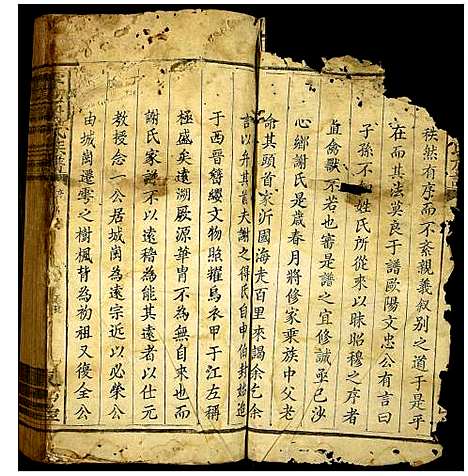 秩然有序而不紊親義叙别之道于是乎
在而其法莫良于譜歐陽文忠公有言曰
子孫不知姓氏所從來以昧昭穆之序者
禽獸不若也審是譜之宜修誠亟已沙
心鄉謝氏是歲春月將修家乗族中父老
命其頭首家沂國海走百里來謁余乞余
言以弁其首夫謝之得氏自申伯封
于西晋簮纓文物照耀烏衣甲于江左稱
極盛矣遠溯厥源華胄不為無自而來
謝氏家譜不以遠稽為能其遠者以仕元
教授念一公居城崗為遠宗近以必榮公
由城崗遷雩之樹楓背為初祖又復全公